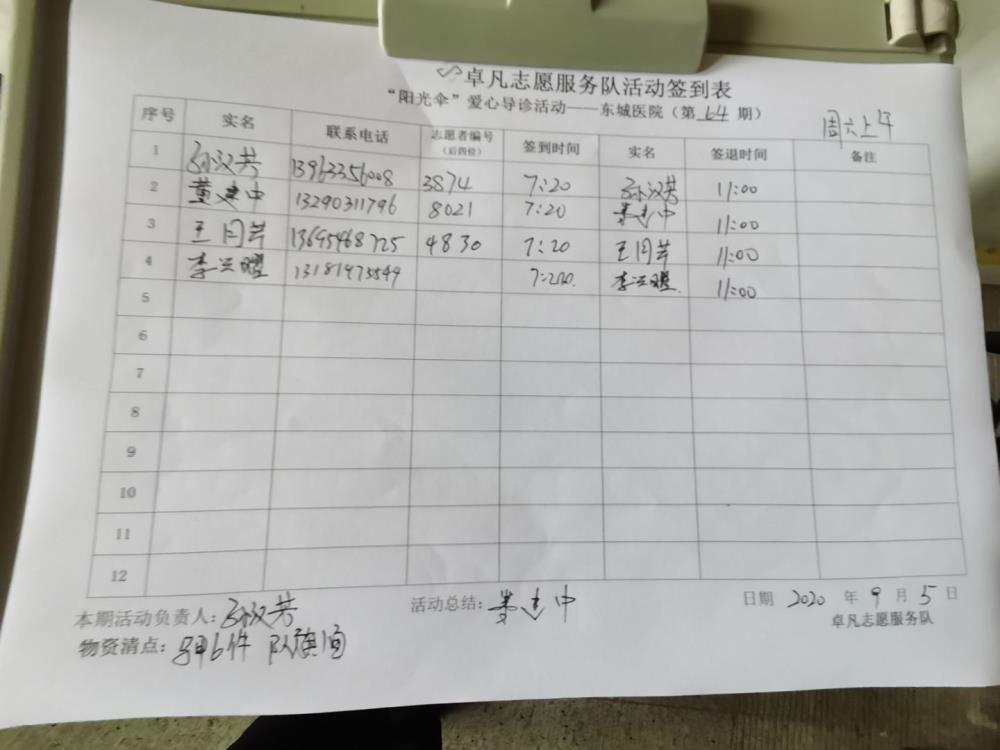 卓凡志愿服务队活动签到表
“阳光伞”爱心导诊活动——东城医院（第 64 期）
周六上午
序号 实名 联系电话 志愿者编号（后四位） 签到时间 实名 签退时间 备注
1 孙汉芬 13963356008 3874 7:20 孙汉芬 11:00
2 黄建中 13290311796 8021 7:20 黄建中 11:00
3 王月芹 13695468725 4830 7:20 王月芹 11:00
4 李兴曜 13181973549 7:20 李兴曜 11:00
5
6
7
8
9
10
11
12
本期活动负责人：孙汉芬 活动总结：黄建中 日期 2020 年 9 月 5 日
卓凡志愿服务队
物资清点：马甲6件 队旗1面